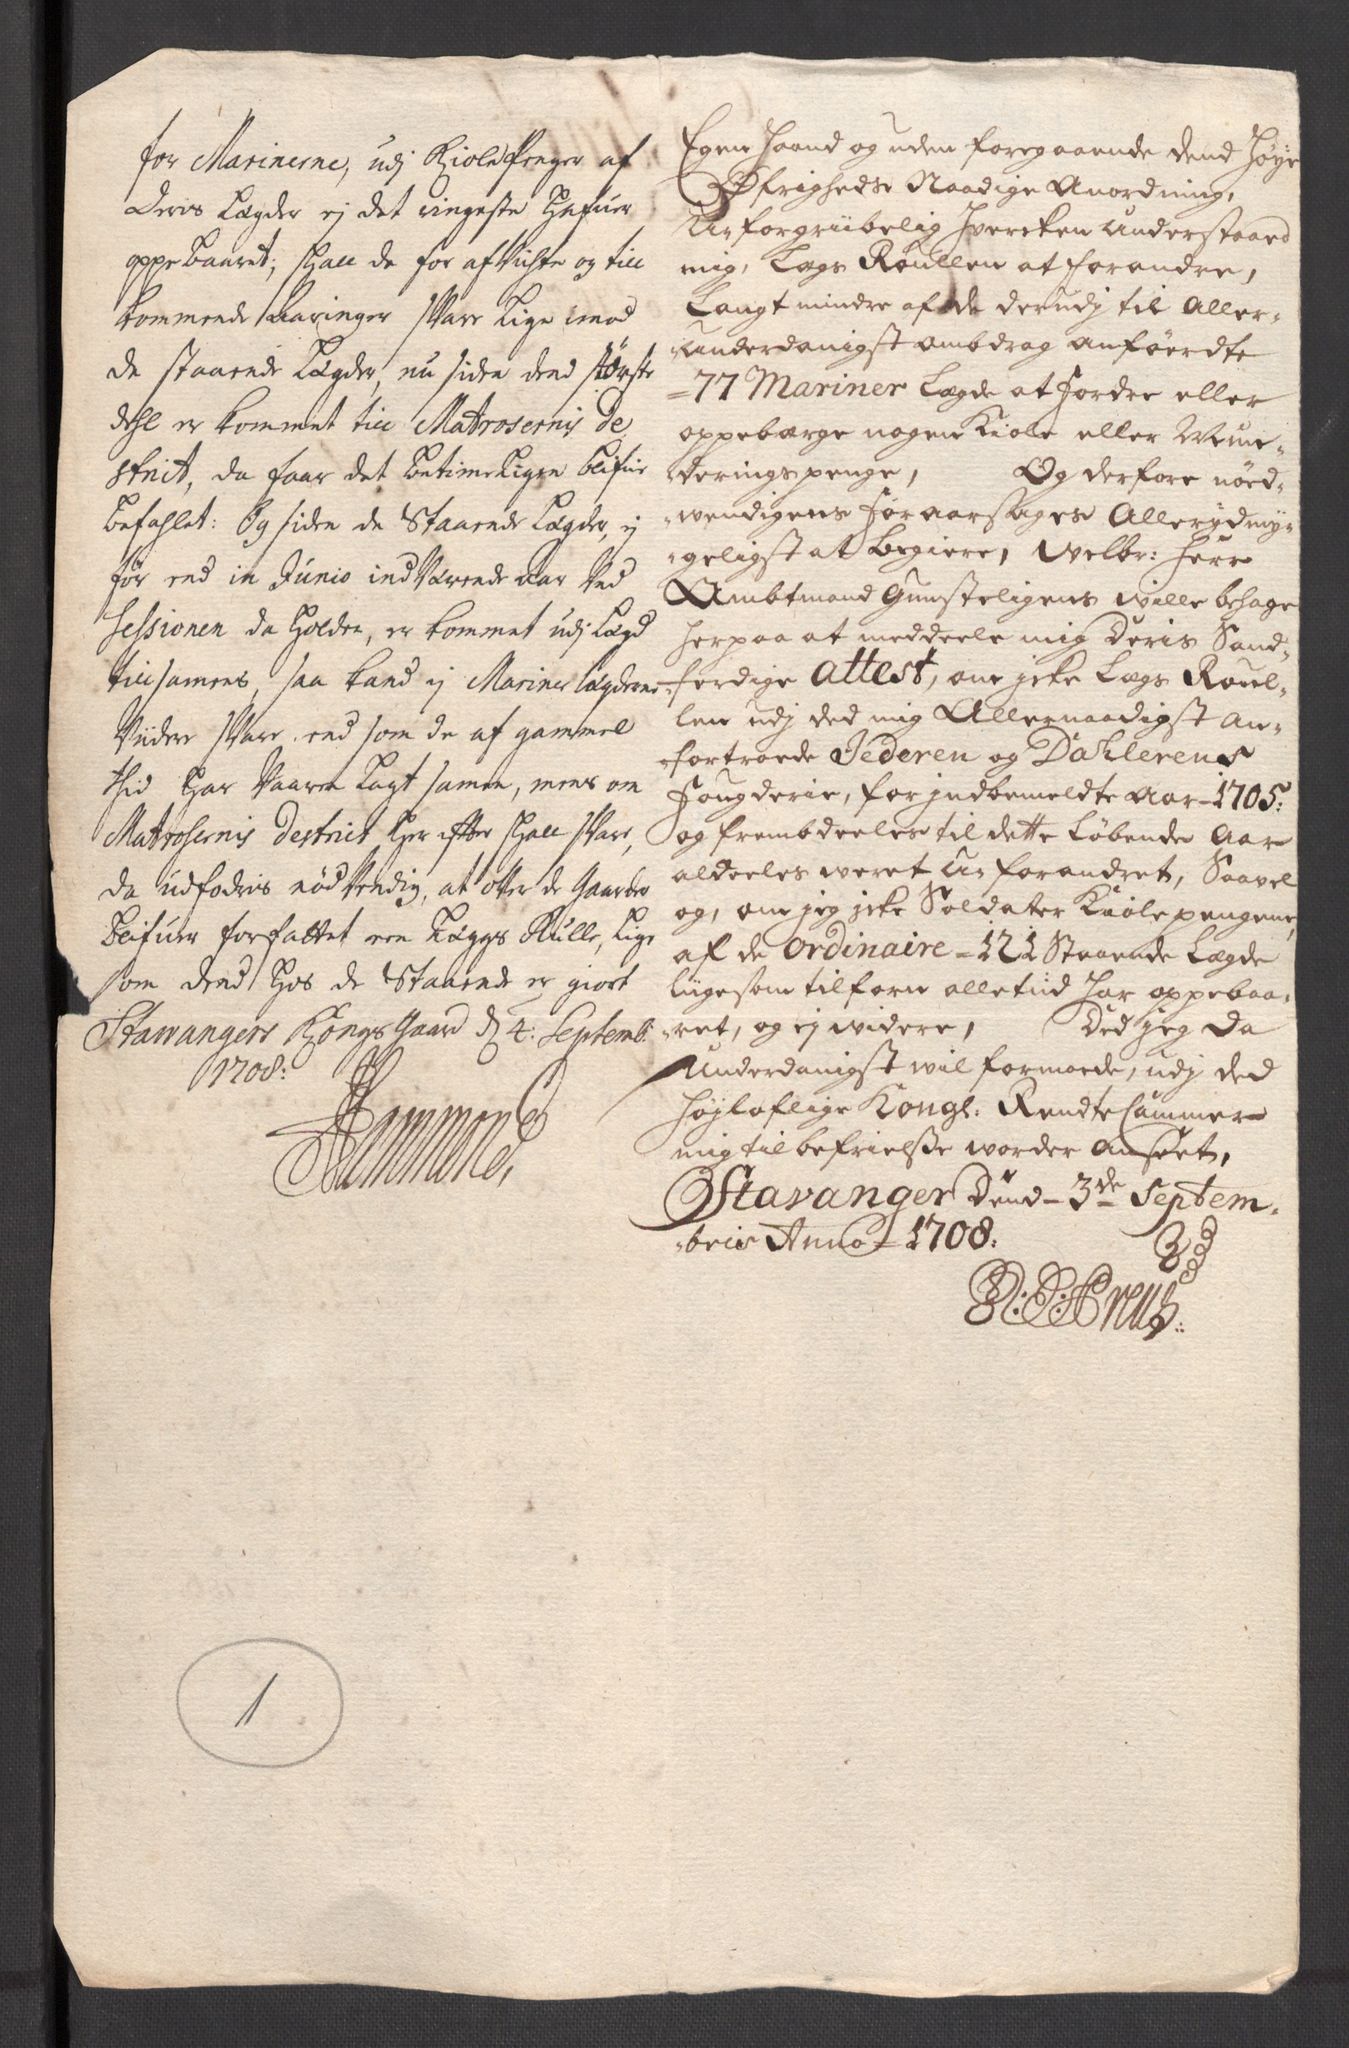 for Marinerne, udj Kiole Penger af
deris Lægder ej det ringeste Hafuer
oppebaaret; skall de for afvichte og till
kommende Aaringer svare lige imod
de staaende Lægder, nu siden dend største
dehl er kommet till Matrosernis de
strict, da faar det betimeligen blifue
befahlet: Og siden de Staaende Lægder, ej
før end in Junio indværende Aar ved
Sessionen da holden, er kommet udj Lægd
tillsamens, saa kand ej Mariner Lægderne
viidere svare end som de af gammel
tid har vaaren lagt samen, mens om
Matrosernis destrict her efter skall svare,
da udfodris nødvendig, at offver de Gaarder
blifuer forfattet een Læggs Rulle, lige
som dend hos de Staaende er giort
Stawangers Kongs Gaard d 4: Septemb:
1708:
Hammond,
Egen Haand og uden foregaaende dend Høye
Øfrigheds Naadige Anordning,
U-forgriibelig hvercken understaaed
mig, Legs Roullen at forandre,
Langt mindre af de derudj til Aller-
underdanigst ombdrag anføerdte
=77 Mariner Legde at fordre eller
oppebærge nogen Kiole eller Mun-
deringspenge, Og derfore nöed-
wendigens foraarsages Allerydmy-
geligst at begiere, Welbr: Herr
Ambtmand Gunsteligens wille behage
herpaa at meddeele mig Deris Sand-
ferdige Attest, om icke Legs Roul-
len udj ded mig Allernaadigst an-
fortroede Jederen og Dahlerens
fougderie, for jndbemeldte Aar 1705:
og frembdeeles til dette Løbende Aar
aldeeles weret U-forandret, Saavel
og, om jeg icke Soldater Kiolepengene,
af de ordinaire = 121 Staaende Legde
liigesom tilforn alletiid har oppebaa-
ret, og ej widere, Ded jeg da
underdanigst wil formode, udj ded
Højloflige Kongl: Rendte Cammer
mig til befrielsse worder anseet,
Stavanger Dend 3de Septem-
bris Anno 1708:
1